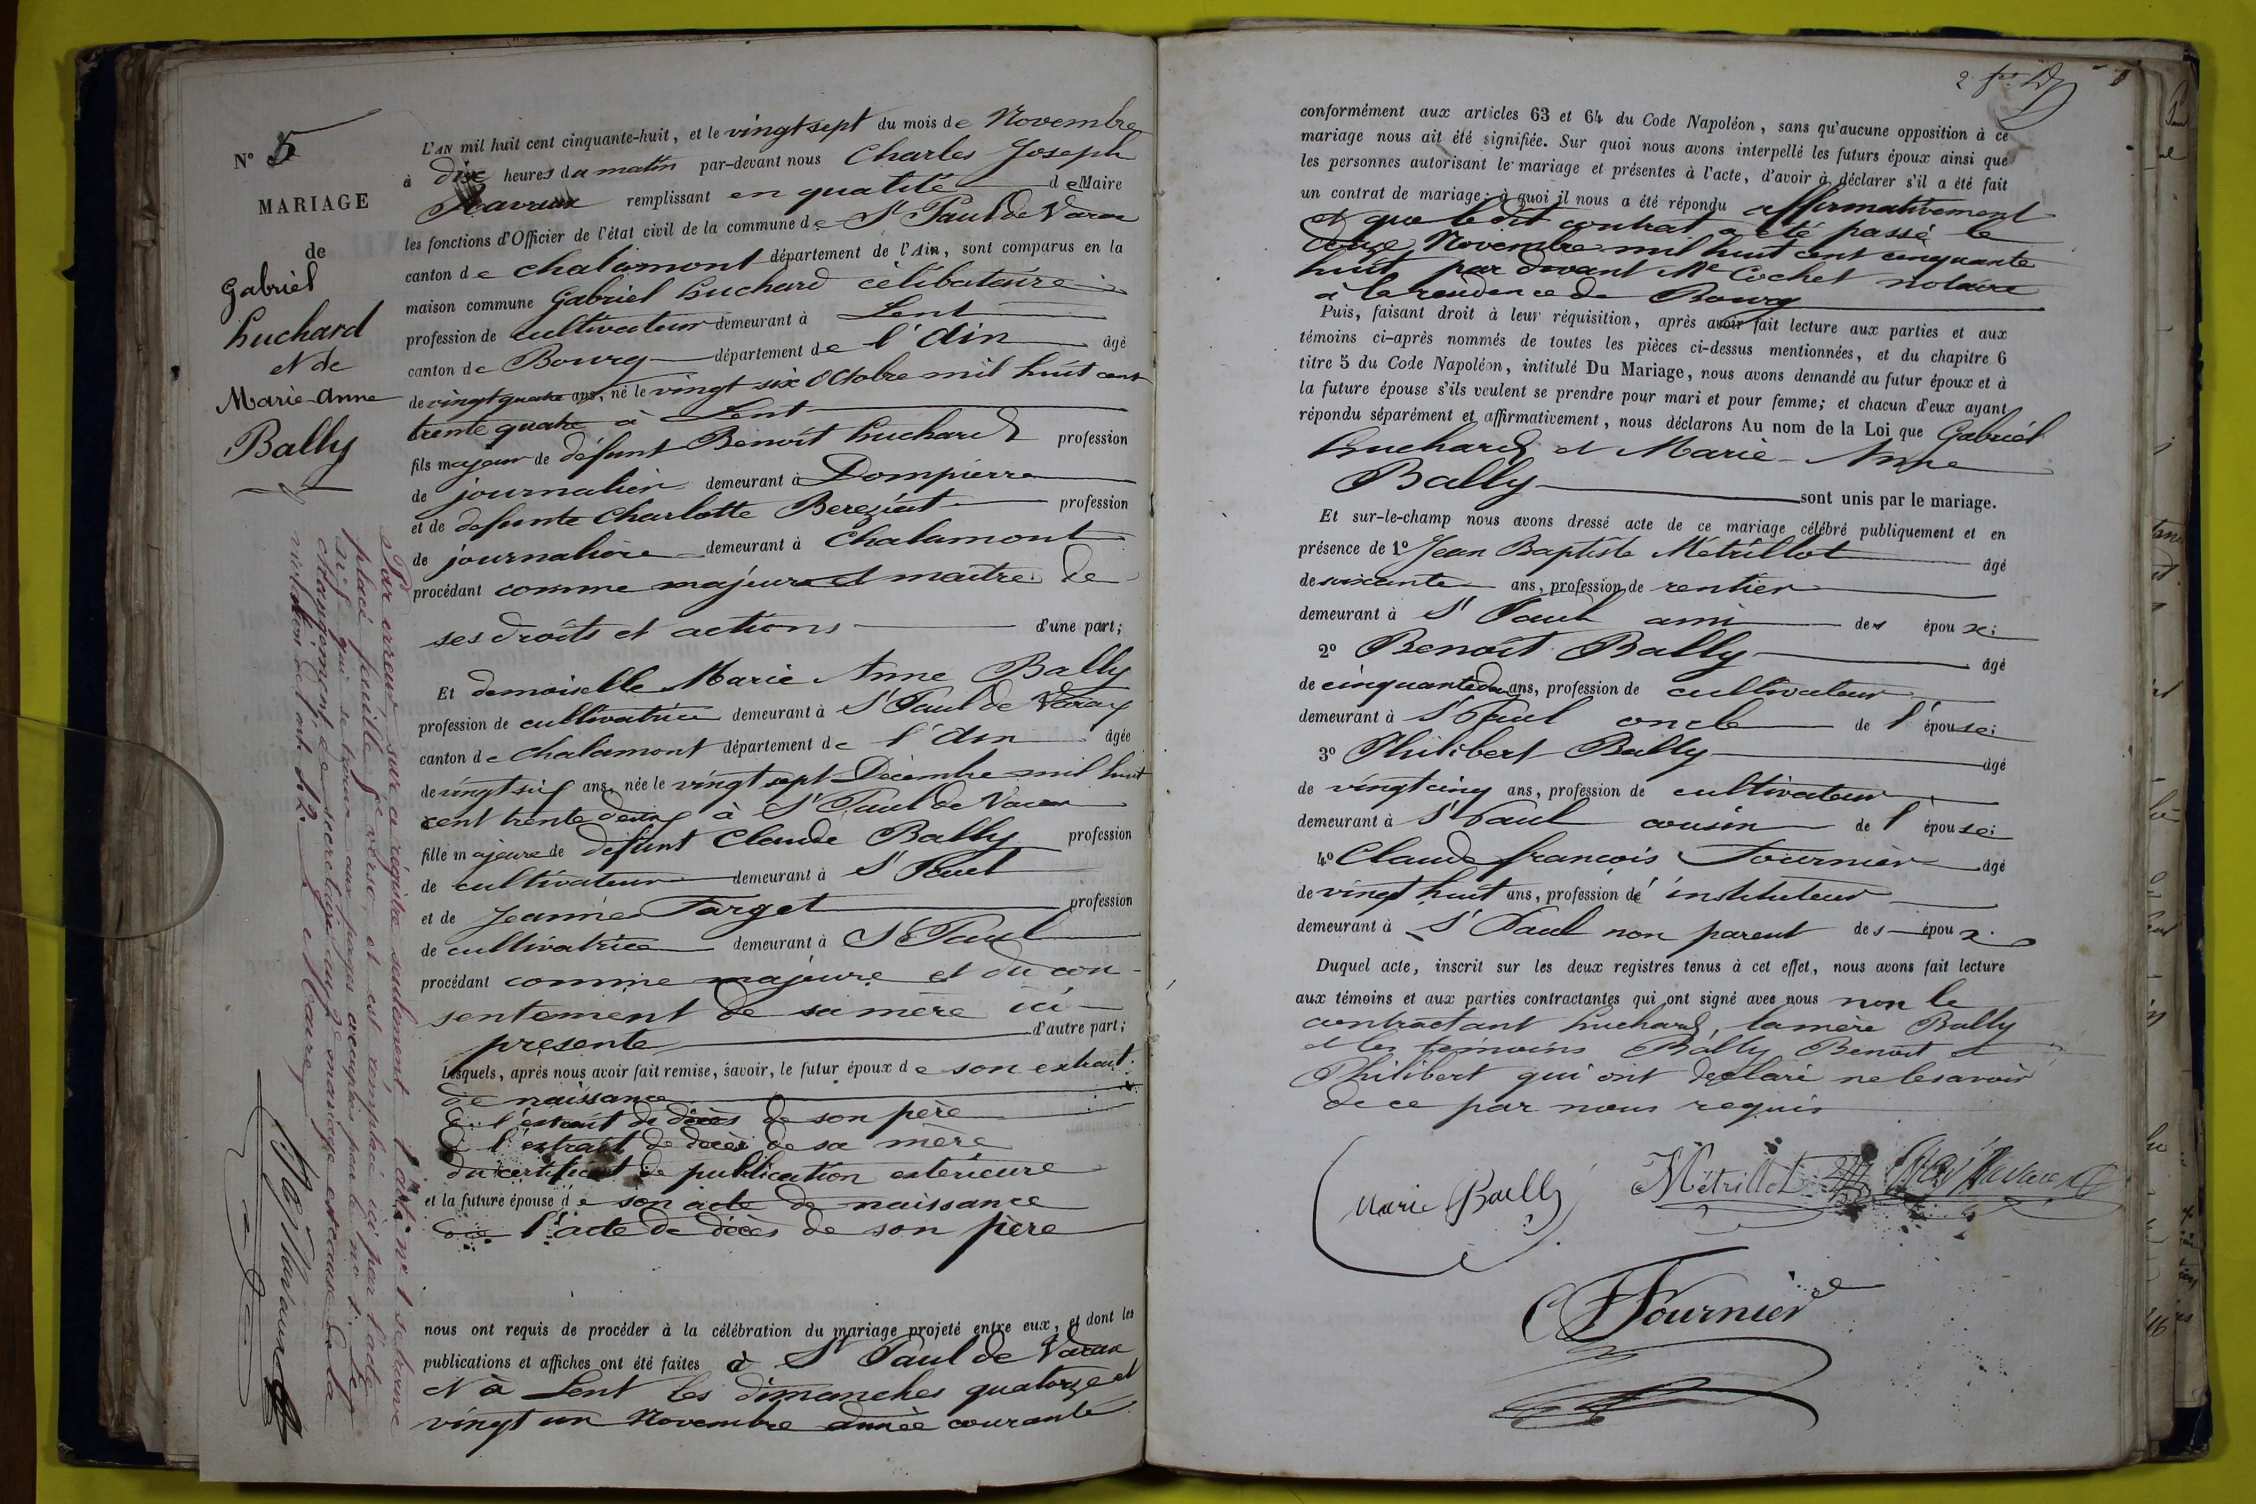 N° 5
MARIAGE
de
Gabriel
Luchard
et de
Marie-Anne
Bally
L'AN mil huit cent cinquante-huit, et le vingt sept du mois de Novembre
à dix heures du matin par-devant nous Charles Joseph
remplissant en qualité de Maire
les fonctions d'Officier de l'état civil de la commune de St Paul de Varax
canton de chalamont département de l'Ain, sont comparus en la
maison commune Gabriel Luchard célibataire
profession de cultivateur demeurant à Lent
canton de Bourg département de l'Ain âgé
de vingt quatre ans, né le vingt six Octobre mil huit cent
trente quatre à Lent
fils majeur de défunt Benoît Luchard profession
de journalier demeurant à Dompierre
et de defunte Charlotte Bereziat profession
de journalière demeurant à Chalamont
procédant comme majeur et maître de
ses droits et actions d'une part;
Et demoiselle Marie Anne Bally
profession de cultivatrice demeurant à St Paul de Varax
canton de chalamont département de l'Ain âgée
de vingt six ans, née le vingt sept Décembre mil huit
cent trente deux à St Paul de Varax
fille majeure de défunt Claude Bally profession
de cultivateur demeurant à St Paul
et de Jeanne Farget profession
de cultivatrice demeurant à St Paul
procédant comme majeure et du con-
sentement de sa mère ici
présente d'autre part;
Lesquels, après nous avoir fait remise, savoir, le futur époux de son extrait
de naissance
de l'extrait de décès de son père
de l'extrait de décès de sa mère
du certificat de publication extérieure
et la future épouse de son acte de naissance
de l'acte de décès de son père
nous ont requis de procéder à la célébration du mariage projeté entre eux, et dont les
publications et affiches ont été faites à St Paul de Varax
et à Lent les dimanches quatorze et
vingt un Novembre année courante
Par erreur sur ce registre seulement l'acte n° 1 se trouve
placé feuille 3e verso, et est remplacé ici par l'acte
n° 5 qui se trouve aux pages occupées par le no 5. Cet
changement de secrétaire
Le Maire
conformément aux articles 63 et 64 du Code Napoléon, sans qu'aucune opposition à ce
mariage nous ait été signifiée. Sur quoi nous avons interpellé les futurs époux ainsi que
les personnes autorisant le mariage et présentes à l'acte, d'avoir à déclarer s'il a été fait
un contrat de mariage; à quoi il nous a été répondu affirmativement
et que le dit contrat a été passé le
douze Novembre mil huit cent cinquante
huit par devant Me Cochet notaire
à la residence de Bourg
Puis, faisant droit à leur réquisition, après avoir fait lecture aux parties et aux
témoins ci-après nommés de toutes les pièces ci-dessus mentionnées, et du chapitre 6
titre 5 du Code Napoléon, intitulé Du Mariage, nous avons demandé au futur époux et à
la future épouse s'ils veulent se prendre pour mari et pour femme; et chacun d'eux ayant
répondu séparément et affirmativement, nous déclarons Au nom de la Loi que Gabriel
Luchard et Marie-Anne
Bally sont unis par le mariage.
Et sur-le-champ nous avons dressé acte de ce mariage célébré publiquement et en
présence de 1° Jean Baptiste Métrillot âgé
de soixante ans, profession de rentier
demeurant à St Paul ami des époux;
2° Benoît Bally âgé
de cinquante deux ans, profession de cultivateur
demeurant à St Paul oncle de l'épouse;
3° Philibert Bally âgé
de vingt cinq ans, profession de cultivateur
demeurant à St Paul cousin de l'épouse;
4° Claude françois Fournier âgé
de vingt huit ans, profession de instituteur
demeurant à St Paul non parent des époux.
Duquel acte, inscrit sur les deux registres tenus à cet effet, nous avons fait lecture
aux témoins et aux parties contractantes qui ont signé avec nous non le
contractant Luchard, la mère Bally
et les témoins Bally Benoît et
Philibert qui ont declaré ne le savoir
de ce par nous requis
Marie Bally
Métrillot
Fournier